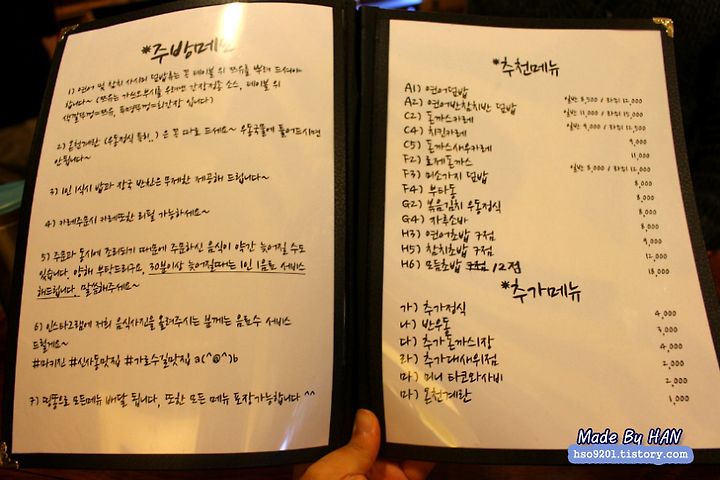 *주방메
1) 연어 및 참치 사시미 덮밥류는 꼭 테이블 위 쯔유를 뿌려 드셔야
합니다~ (쯔유는 가쓰오부시를 우려만 간장정종 소스, 테이블 위
색깔뚜껑이쯔유, 투명뚜껑이간장 입니다)
2) 온천계란 (우동정식 등..) 은 꼭 따로 드세요~ 우동국물에 풀어드시면
안됩니다~
3) 1인 1식시 밥과 장국 반찬은 무제한 제공해 드립니다~
4) 카레주문시 카레또한 리필 가능하세요~
5) 주문과 동시에 조리되기 때문에 주문하신 음식이 약간 늦어질 수도
있습니다. 양해 부탁드리구요, 30분이상 늦어질때는 1인 1음료 서비스
해드립니다. 말씀해주세요~
6) 인스타그램에 저희 음식사진을 올려주시는 분께는 음료수 서비스
드릴게요~
#마키진 #신사동맛집 #가로수길맛집 a(^@^)b
7) 띵똥으로 모든메뉴 배달 됩니다, 또한 모든 메뉴 포장가능합니다 ^^
*추천메뉴
A1) 연어덮밥 일반 8,500 / 특대 12,000
A2) 연어반참치반 덮밥 일반 11,000 / 특대 15,000
C2) 돈까스카레 일반 9,000 / 특대 12,500
C4) 치킨카레 9,000
C5) 돈까스새우카레 11,000
F2) 로제돈까스
F3) 미소가지 덮밥 일반 8,000 / 특대 12,000
F4) 부타동 8,000
G2) 볶음김치 우동정식 9,000
G4) 자루소바 8,000
H3) 연어초밥 7점 9,000
H5) 참치초밥 7점 12,000
H6) 모듬초밥 12점 18,000
*추가메뉴
가) 추가정식 4,000
나) 반우동 3,000
다) 추가돈까스1장 4,000
라) 추가대새우1점 2,000
마) 미니 타코와사비 2,000
마) 온천계란 1,000
Made By HAN
hso9201.tistory.com